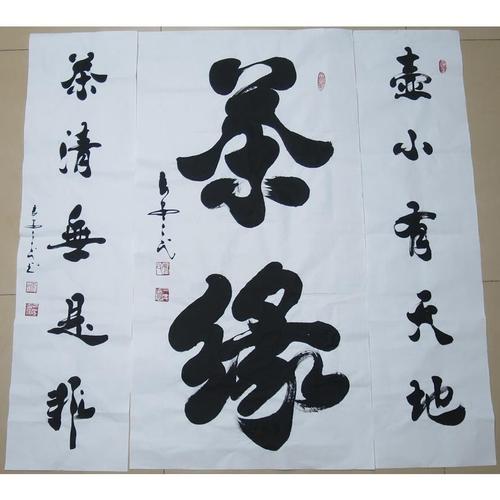 壺小有天地
茶缘
茶清無是非